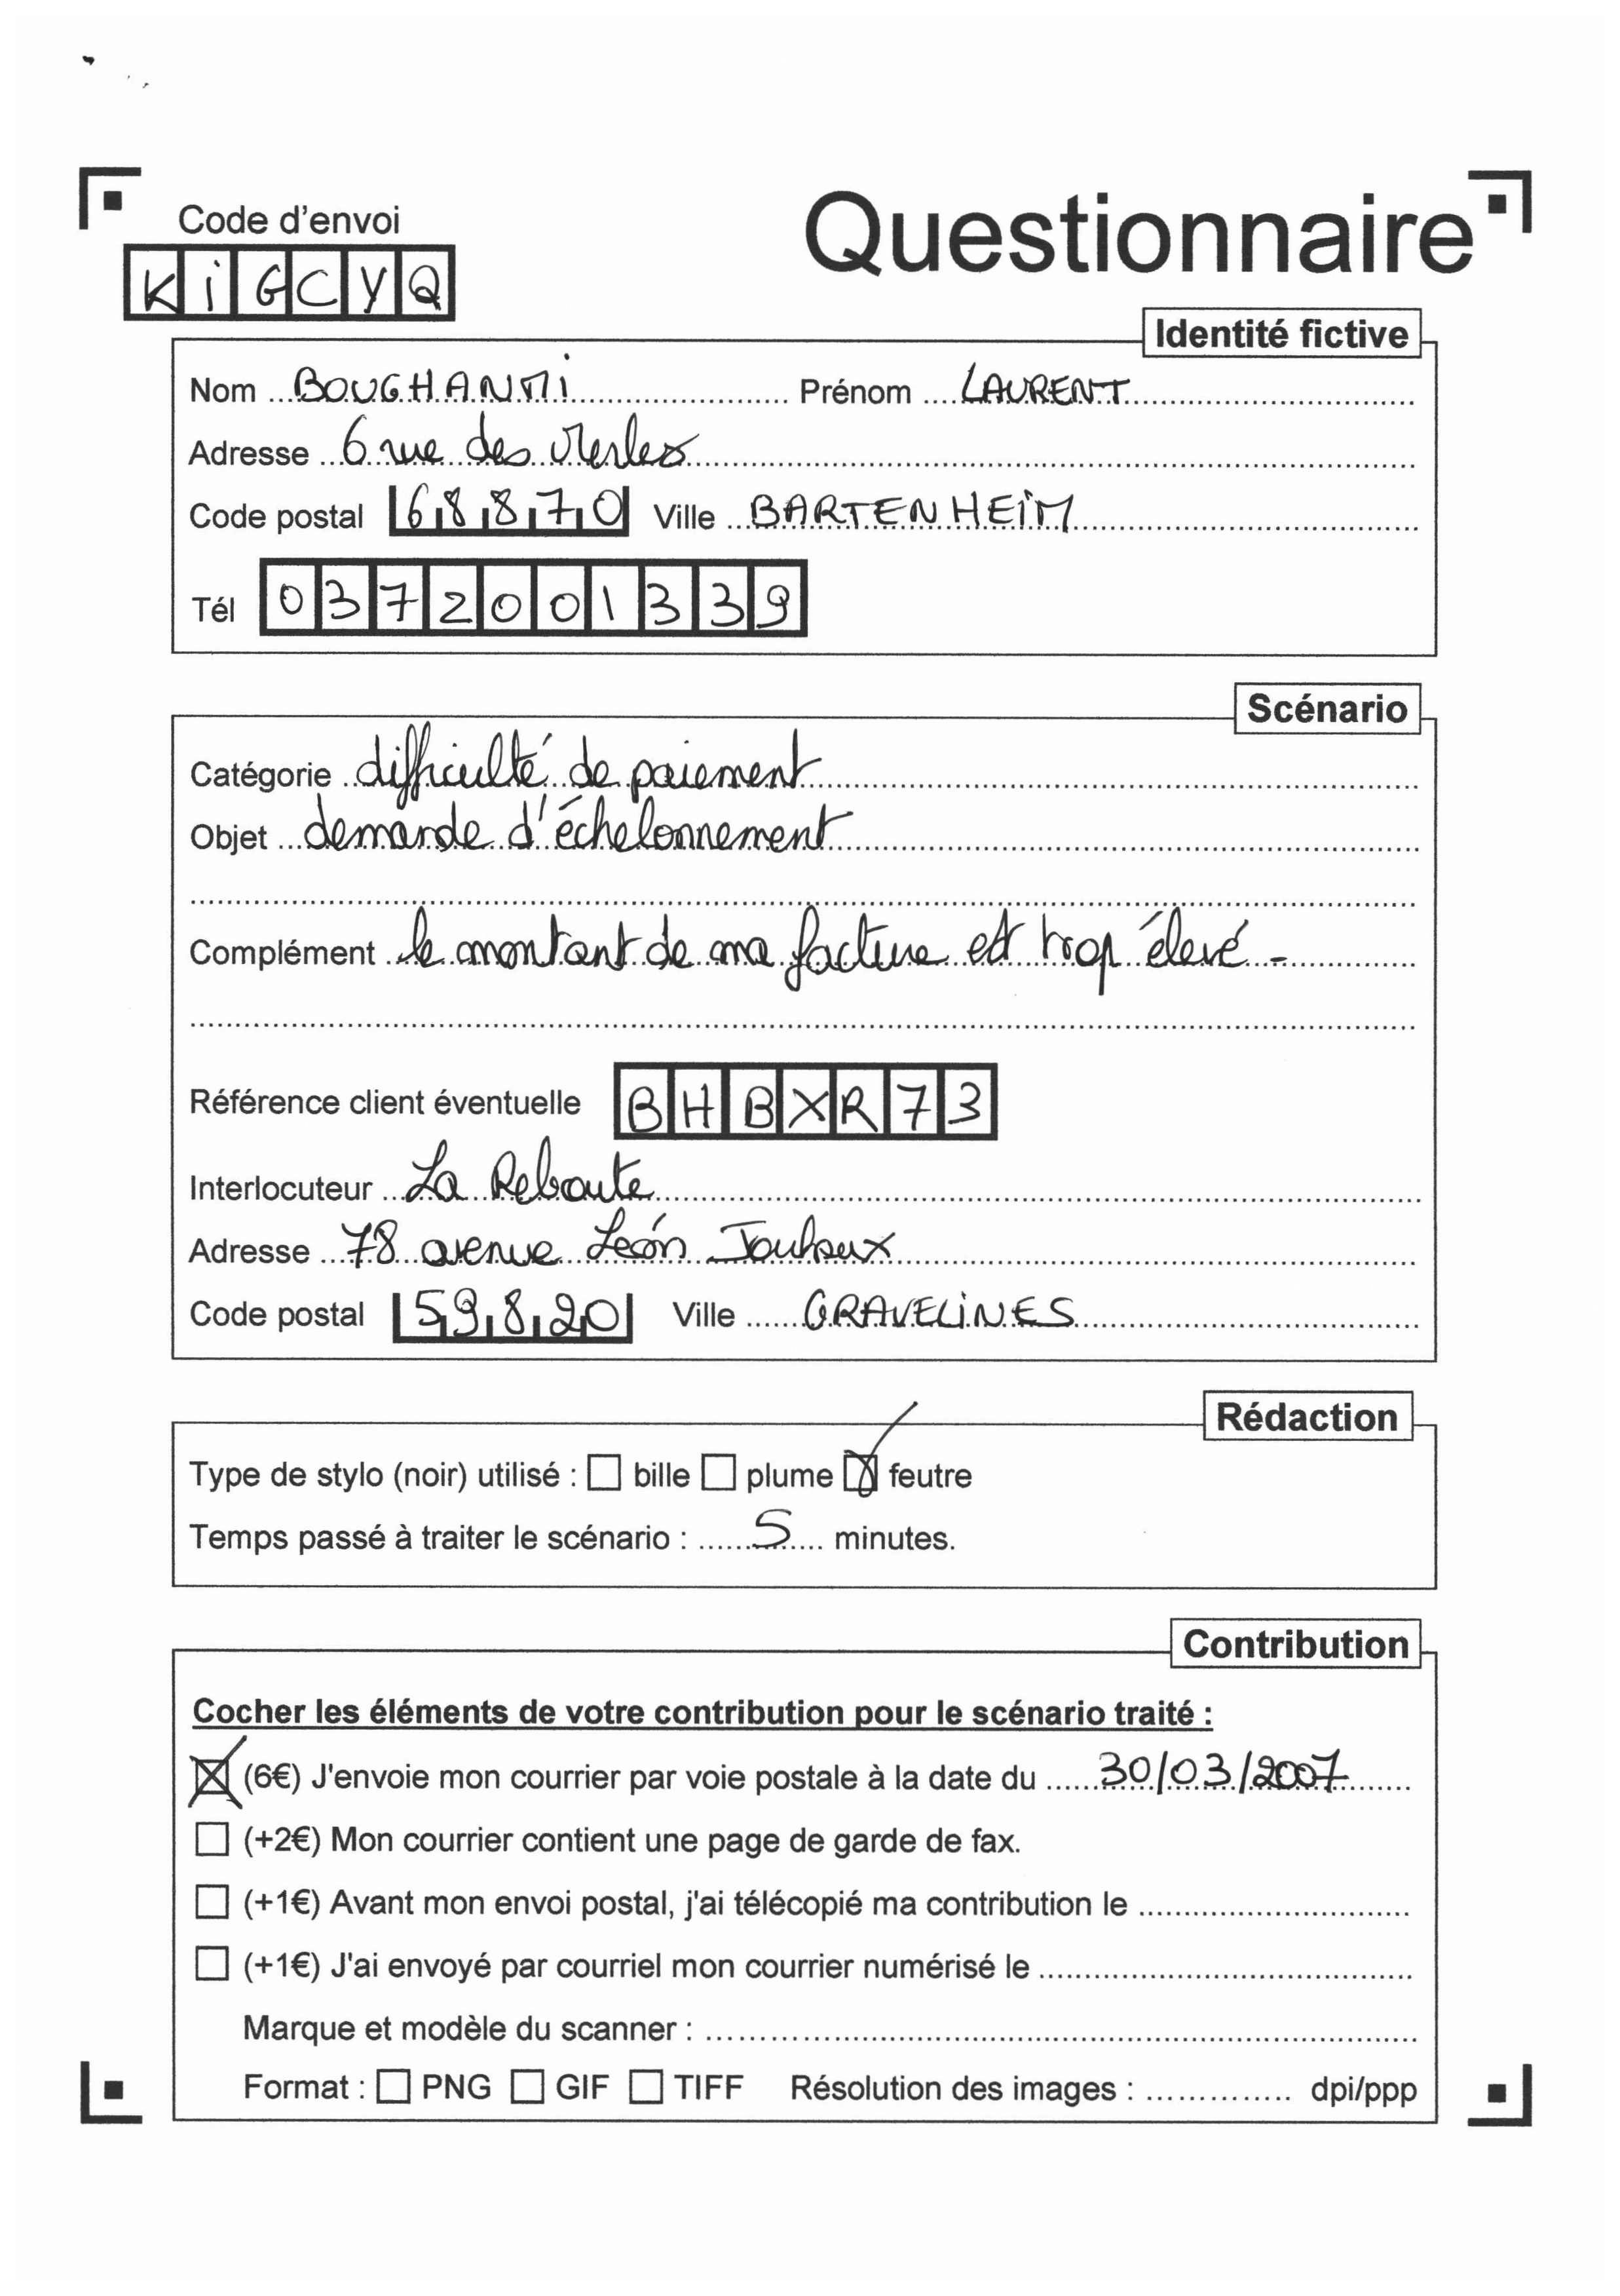 Code d'envoi
Questionnaire
KiGCYQ
Identité fictive
Nom BOUGHANMi Prénom LAURENT
Adresse 6 rue des Merles
Code postal 68870 Ville BARTENHEiM
Tél 0372001339
Scénario
Catégorie difficulté de paiement
Objet demande d'échelonnement
Complément le montant de ma facture est trop élevé -
Référence client éventuelle BHBXR73
Interlocuteur La Reboute
Adresse 78 avenue Léon Jouhaux
Code postal 59820 Ville GRAVELiNES
Rédaction
Type de stylo (noir) utilisé : bille plume feutre
Temps passé à traiter le scénario : 5 minutes.
Contribution
Cocher les éléments de votre contribution pour le scénario traité :
(6€) J'envoie mon courrier par voie postale à la date du 30/03/2007
(+2€) Mon courrier contient une page de garde de fax.
(+1€) Avant mon envoi postal, j'ai télécopié ma contribution le
(+1€) J'ai envoyé par courriel mon courrier numérisé le
Marque et modèle du scanner :
Format : PNG GIF TIFF Résolution des images : dpi/ppp